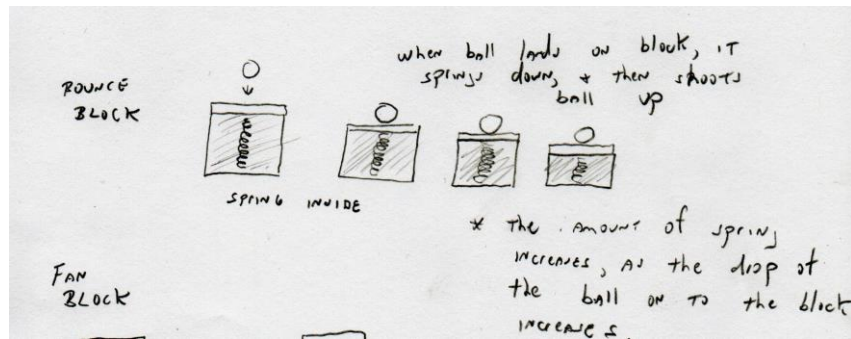 when ball lands on block, it
springs down, & then shoots
ball up
BOUNCE
BLOCK
SPRING INSIDE
* the amount of spring
increases, as the drop of
the ball on to the block
increases.
FAN
BLOCK